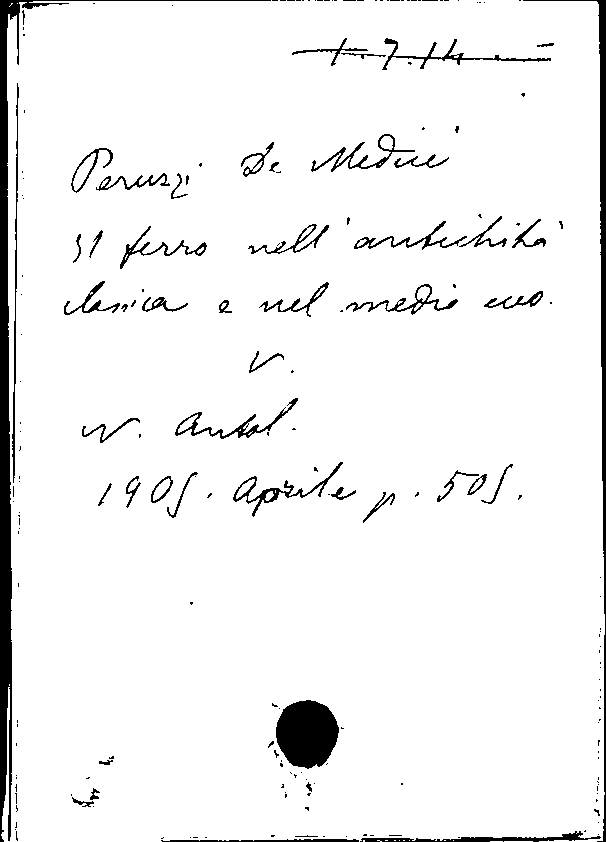 1.7.14.
Peruzzi De Medici
Il ferro nell'antichità
classica e nel medio evo.
V.
N. Antol.
1905. Aprile p. 505.